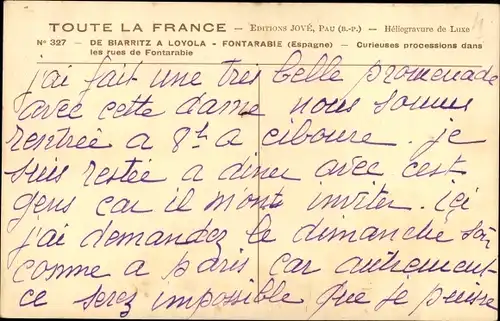 TOUTE LA FRANCE - EDITIONS JOVÉ, PAU (B.-P.) - Héliogravure de Luxe
N° 327 - DE BIARRITZ A LOYOLA - FONTARABIE (Espagne) - Curieuses processions dans
les rues de Fontarabie
j'ai fait une tres belle promenade
avec cette dame nous somms
rentrée a 8h a ciboure. je
suis restée a diner avec cest
gens car il m'ont inviter. ici
j'ai demandez le dimanche
comme a paris car autrement
ce serez impossible que je puisse